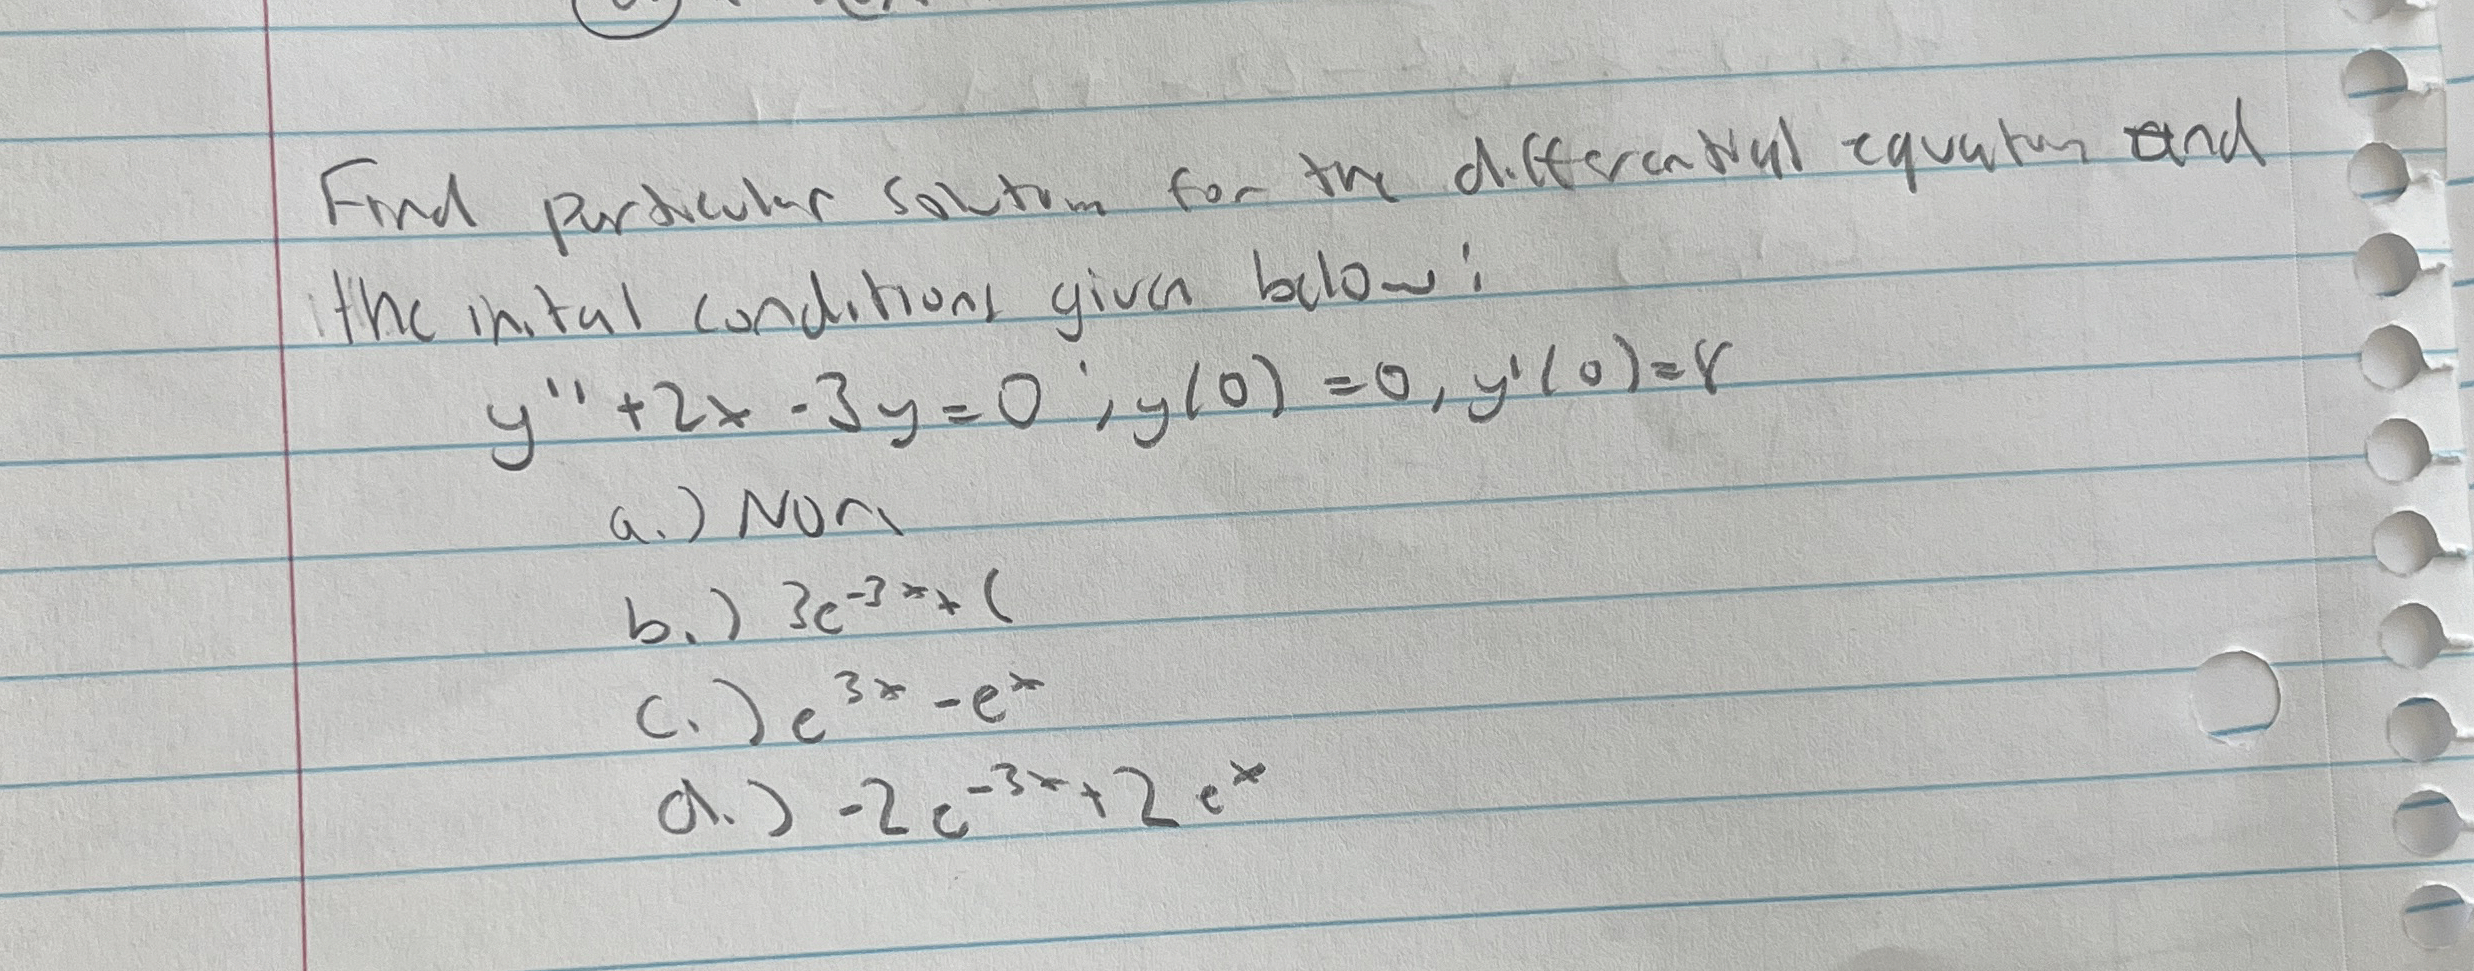 Find particular solution for the differential equation and
the initial conditions given below:
y'' + 2x - 3y = 0 ; y(0) = 0, y'(0) = 8
a.) Non
b.) 3e^-3x + C
c.) e^3x - e^x
d.) -2e^-3x + 2e^x